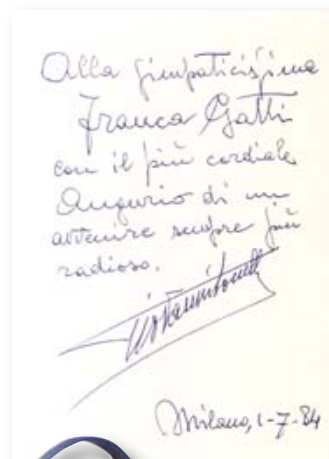 Alla simpaticissima
Franca Gatti
con il più cordiale
Augurio di un
avvenire sempre più
radioso.
Milano, 1-7-84